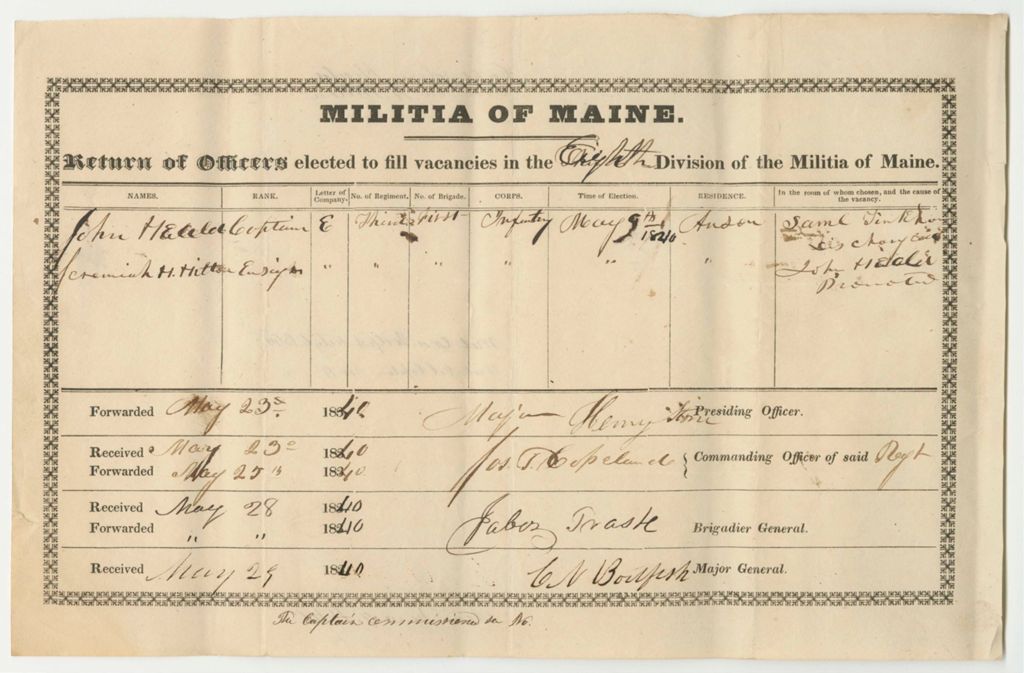 MILITIA OF MAINE.
Return of Officers elected to fill vacancies in the Eighth Division of the Militia of Maine.
NAMES. RANK. Letter of Company. No. of Regiment. No. of Brigade. CORPS. Time of Election. RESIDENCE. In the room of whom chosen, and the cause of the vacancy.
John Heald Captain E Third First Infantry May 9th 1840 Anson Saml Tinkham
discharged
Jeremiah H. Hilton Ensign " " " " " " John Heald
Promoted
Forwarded May 23d 1840 Major Henry Presiding Officer.
Received May 23d 1840
Forwarded May 25th 1840 Jos. T. Copeland } Commanding Officer of said Regt
Received May 28 1840
Forwarded " " 1840 Jabez Trask Brigadier General.
Received May 29 1840 C N Bodfish Major General.
The Captain commissioned in